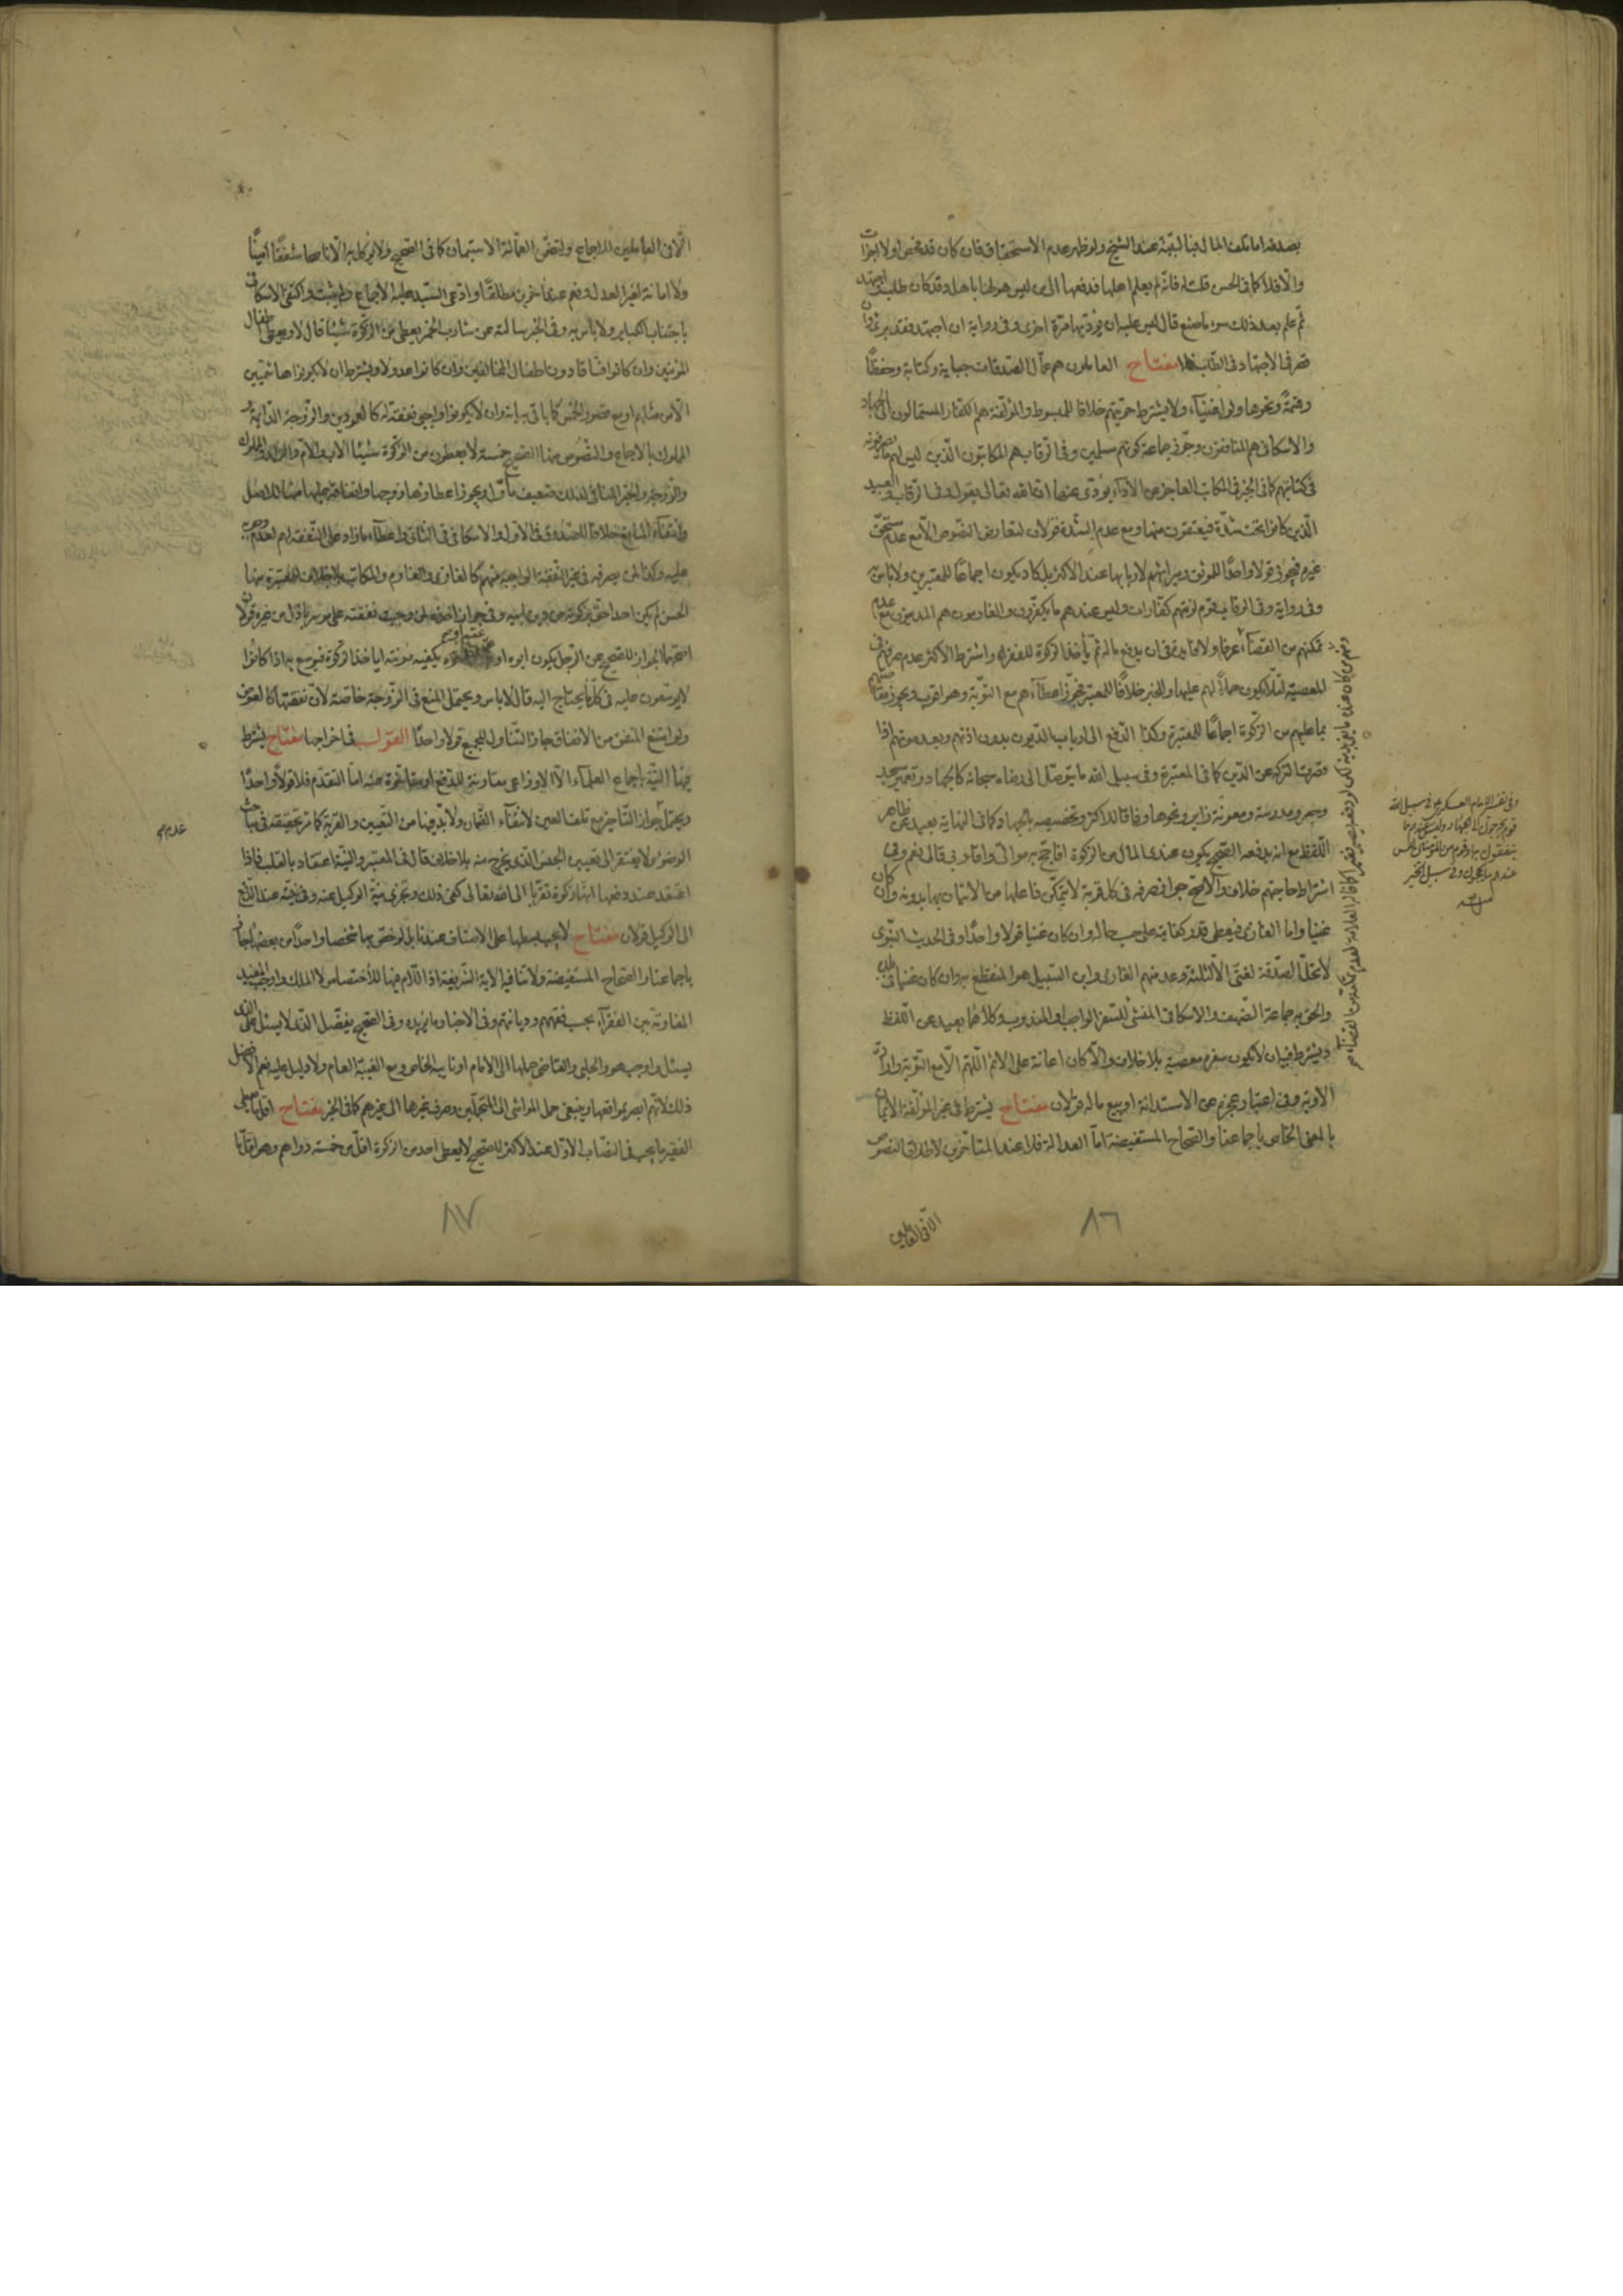 بصدقه اما تلف المال فبالنية عند الشيخ ولو ظهر عدم الاستحقاق فان كان قد فحص اولا اجزأت
والا فلا كما في الحسن قلت له فانه لم يعلم اهلها فدفعها الى من ليس هو لها باهل وقد كان طلب واجتهد
ثم علم بعد ذلك سوء ما صنع قال ليس عليه ان يؤديها مرة اخرى وفي رواية ان اجتهد فقد برئ وان
قصر في الاجتهاد في الطلب فلا مفتاح العاملون هم عمال الصدقات جباية وكتابة وحفظا
وقسمة ونحوها ولو اغنياء ولا يشترط حريتهم خلافا للمبسوط والمؤلفة هم الكفار المستمالون الى الجهاد
والاسكافي هم المنافقون وجوز جماعة كونهم مسلمين وفي الرقاب هم المكاتبون الذين ليس لهم ما يصرفونه
في كتابتهم كما في الخبر في المكاتب العاجز عن الاداء يؤدى عنهما ان الله تعالى يقول وفي الرقاب والعبيد
الذين كانوا تحت شدة فيعتقون منها ومع عدم الشدة قولان لتعارض النصوص الا مع عدم مستحق
غيرهم فيجوز قولا واحدا للموثق وميراثهم لاربابها عند الاكثر بل كاد يكون اجماعا للمعتبرين ولا باس به
وفي رواية وفي الرقاب قوم لزمتهم كفارات وليس عندهم ما يكفرون والغارمون هم المدينون مع عدم
تمكنهم من القضاء عرفا ولا فايدة في ان يدفع ماله ثم يأخذ الزكوة للفقر واشترط الاكثر عدم صرفهم في
المعصية لئلا يكون حملا لهم عليها وللخبر خلافا للمعتبر فجوز اعطاءهم مع التوبة وهو اقوى ويجوز مقاصتهم
بما عليهم من الزكوة اجماعا للمعتبرة وكذا الدفع الى ارباب الديون بدون اذنهم وبعد موتهم اذا
قصرت التركة عن الدين كما في المعتبرة وفي سبيل الله ما يتوصل الى رضاه سبحانه كالجهاد وتعمير مسجد
وجسر ومدرسة ومعونة زاير ونحوها وفاقا للاكثر وتخصيصه بالجهاد كما في النهاية بعيد عن ظاهر
اللفظ مع انه يدفعه الصحيح يكون عندي المال من الزكوة افاحج به موالي واقاربي قال نعم وفي
اشتراط حاجتهم خلاف والاصح جواز صرفه في كل قربة لا يتمكن فاعلها من الاتيان بها بدونه وان كان
غنيا واما الغازي فيعطى قدر كفايته على حسب حاله وان كان غنيا قولا واحدا وفي الحديث النبوي
لا تحل الصدقة لغني الا لثلثة وعد منهم الغازي وابن السبيل هو المنقطع به وان كان غنيا في بلده
والحق به جماعة الضيف والاسكافي المنشئ للسفر الواجب او المندوب وكلاهما بعيد عن اللفظ
ويشترط فيه ان لا يكون سفره معصية بلا خلاف والا كان اعانة على الاثم اللهم الا مع التوبة وارادة
الاوبة وفي اعتبار عجزه عن الاستدانة او بيع ماله قولان مفتاح يشترط في غير المؤلفة الايمان
بالمعنى الخاص باجماعنا والصحاح المستفيضة اما العدالة فلا عند المتاخرين لاطلاق النصوص
الا في العاملين
٨٦
وفي تفسير الامام العسكري ع في سبيل الله
قوم يخرجون الى الجهاد وليس عندهم ما
ينفقون به او قوم من المؤمنين ليس
عندهم ما يحجون او في سبيل الخير
منه
الا في العاملين للاجماع ولتضمن العمالة الاستيمان كما في الصحيح ولا توكل به الا ناصحا شفيقا امينا
ولا امانة لغير العدل وفهم عدمه اخرين مطلقا وادعى السيد عليه الاجماع ولم يثبت واكتفى الاسكافي
باجتناب الكباير ولا باس به وفي الخبر سالته عن شارب الخمر يعطى من الزكوة شيئا قال لا ويعطى اطفال
المؤمنين وان كانوا فساقا دون اطفال المخالفين وان كانوا عدولا ويشترط ان لا يكونوا هاشميين
الا من مثلهم او مع قصور الخمس كما ياتي بيانه وان لا يكونوا واجبي نفقته كالعمودين والزوجة الدائمة و
المملوك بالاجماع والنصوص منها الصحيح خمسة لا يعطون من الزكوة شيئا الاب والام والولد والمملوك
والزوجة والخبر المنافي لذلك ضعيف مأول ويجوز اعطاؤها زوجها وانفاقه عليها منها للاصل
وانتفاء المانع خلافا للصدوق في الاول والاسكافي في الثاني واعطاء ما زاد على النفقة لهم لعدم وجوبه
عليه وكذا لمن يصرفه في غير النفقة الواجبة منهم كالغازي والغارم والمكاتب بلا خلاف للمعتبرة منها
الحسن لم يكن احد احق بزكوته من دين ابيه وفي جواز اخذها لمن وجبت نفقته على موسر باذل من غيره قولان
اصحهما الجواز للصحيح عن الرجل يكون ابوه او عمه او اخوه يكفيه مؤنته ايأخذ الزكوة فيوسع به اذا كانوا
لا يوسعون عليه في كل ما يحتاج اليه قال لا باس ويحتمل المنع في الزوجة خاصة لان نفقتها كالعوض
ولو امتنع المنفق من الانفاق جاز التناول للجميع قولا واحدا القول في اخراجها مفتاح يشترط
فيها النية باجماع العلماء الا الاوزاعي مقارنة للدفع او متاخرة عنه اما التقدم فلا قولا واحدا
ويحتمل جواز التاخير مع تلف العين لانتفاء الضمان ولا بد فيها من التعيين والقربة كما مر تحقيقه في مباحث
الوضوء ولا يفتقر الى تعيين الجنس الذي يخرج منه بلا خلاف قال في المعتبر والنية اعتقاد بالقلب فاذا
اعتقد عند دفعها انها زكوة تقربا الى الله تعالى كفى ذلك وتجزي نية الوكيل عنه وفي نيته عند الدفع
الى الوكيل قولان مفتاح لا يجب بسطها على الاصناف عندنا بل لو خص بها شخصا واحدا من بعضها جاز
باجماعنا والصحاح المستفيضة ولا تنافيه الاية الشريفة اذ اللام فيها للاختصاص لا الملك واوجب المفيد
المفاوتة بين الفقراء بحسب فقههم وديانتهم وفي الاخبار ما يؤيده وفي الصحيح يفضل الذي لا يسئل على الذي
يسئل واوجب هو والحلبي والقاضي حملها الى الامام او نايبه الخاص ومع الغيبة العام ولا دليل عليه نعم الافضل
ذلك لانهم ابصر بمواضعها وينبغي حمل المواشي الى المتجملين وصرف غيرها الى غيرهم كما في الخبر مفتاح اقل ما يعطى
الفقير ما يجب في النصاب الاول عند الاكثر للصحيح لا يعطى احد من الزكوة اقل من خمسة دراهم وهو اقل ما
٨٧